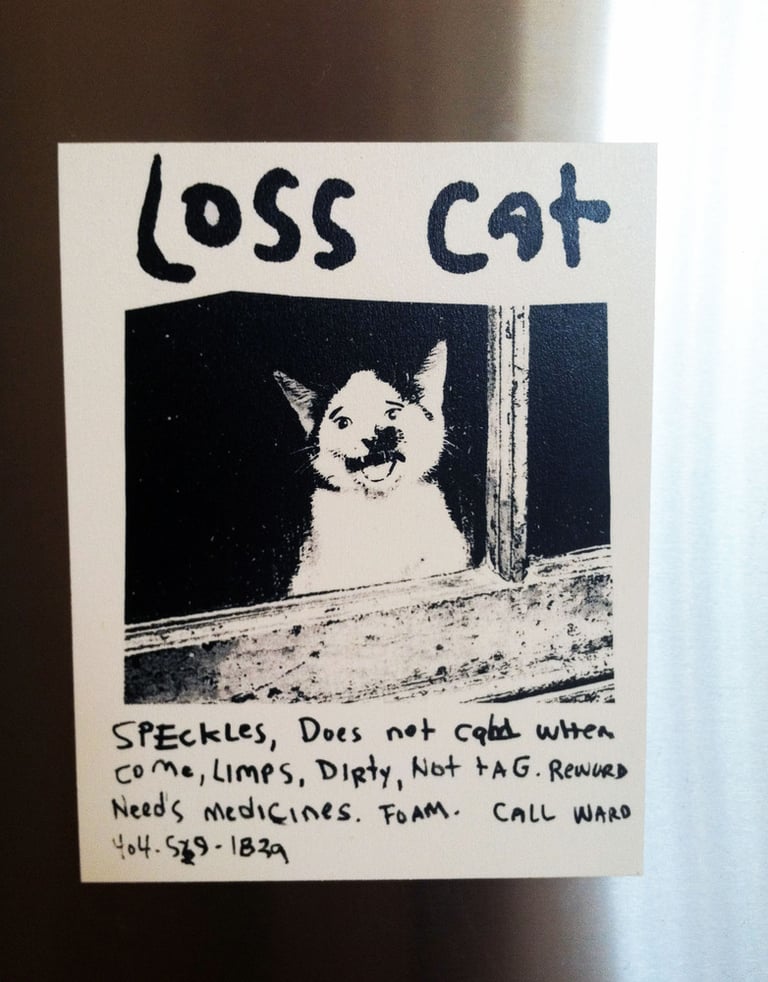 Loss cat
SPEckLEs, Does not when
come, LimPs, DiRty, Not tAG. REWURD
NEED's mEDicines. FOAM. CALL WARD